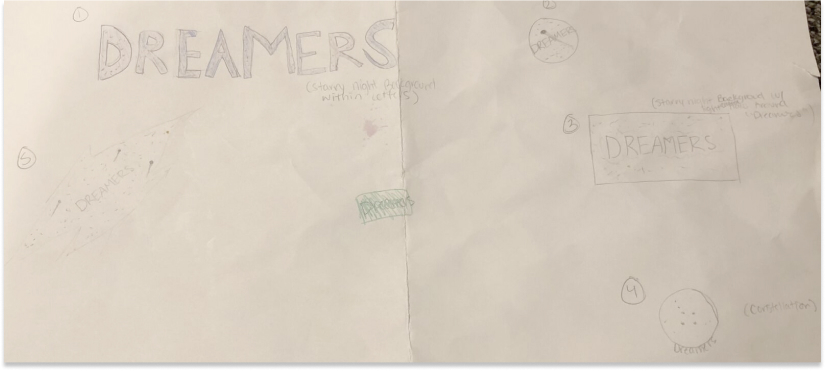 1
DREAMERS
(starry night Background
within letters)
2
DREAMERS
3
(starry night Background w/
Around
DREAMERS
5
DREAMERS
Dreamers
4
(Constilation)
Dreamers